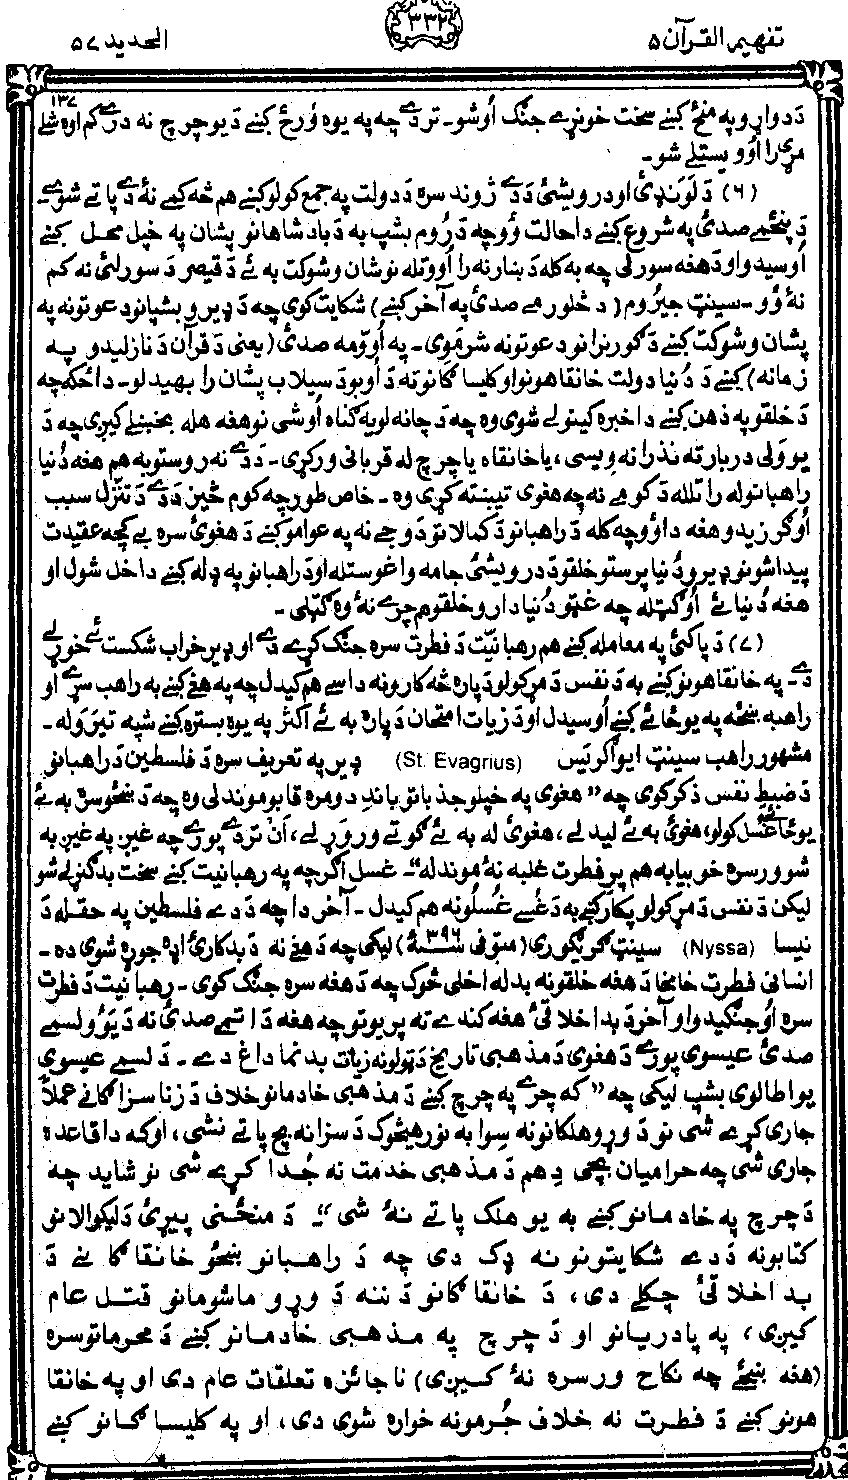 تفهیم القرآن ۵
۳۳۲
الحدید ۵۷
دَ دواړو په منځ کښے سخت خونړے جنګ اُوشو۔ تر دے چه په یوه وُرځ کښے دَ یو چرچ نه دَرے کم اوه شلے ۱۳۷
مړی را اُوو یستلے شو۔
(۶) دَ لوَندئ او درویشئ دَ دے ژوند سره دَ دولت په جمع کولو کښے هم څه کمے نۀ دے پاتے شوے۔
دَ پنځمے صدئ په شروع کښے دا حالت وُو چه دَ رُوم بشپ به دَ بادشاهانو پشان په خپل محل کښے
اُوسیدو او دَ هغه سورلی چه به کله دَ ښار نه را اُووتله نو شان و شوکت به ئے دَ قیصر دَ سورلئ نه کم
نۀ وُو۔ سینټ جیروم (دَ څلورمے صدئ په آخر کښے) شکایت کوی چه دَ ډیرو بشپانو دعوتونه په
شان و شوکت کښے دَ ګورنرانو دعوتونه شرموی۔ په اُوؤمه صدئ (یعنی دَ قرآن دَ نازلیدو په
زمانه) کښے دَ دُنیا دولت خانقاهونو او کلیساګانو ته دَ اُوبو دَ سیلاب پشان را بهیدلو۔ دا ځکه چه
دَ خلقو په ذهن کښے دا خبره کینولے شوی وه چه دَ چا نه لویه ګناه اُوشی نو هغه هله بخښلے کیږی چه دَ
یو ولی دربار ته نذرانه ویسی، یا خانقاه یا چرچ له قربانی ورکړی۔ دَ دے نه روستو به هم هغه دُنیا
راهبانو له را تلله دَ کومے نه چه هغوی تیښته کړی وه۔ خاص طور چه کوم څیز دَ دے دَ تنزل سبب
اُوګرزیدو هغه دا وُو چه کله دَ راهبانو دَ کمالاتو دَ وجے نه په عوامو کښے دَ هغوئ سره بے کچه عقیدت
پیدا شو نو ډیرو دُنیا پرستو خلقو دَ درویشئ جامه واغوستله او دَ راهبانو په ډله کښے داخل شول او
هغه دُنیا ئے اُوګټله چه غټو دُنیا دارو خلقو هم چرے نۀ وه ګټلی۔
(۷) دَ پاکئ په معامله کښے هم رهبانیّت دَ فطرت سره جنګ کړے دے او ډیر خراب شکست ئے خوړلے
دے۔ په خانقاهونو کښے به دَ نفس دَ مړ کولو دَپاره څه کارونه داسے هم کیدل چه په هغے کښے به راهب سړے او
راهبه ښځه په یو ځائے کښے اُوسیدل او دَ زیات امتحان دَپاره به ئے اکثر په یوه بستره کښے شپه تیروله۔
مشهور راهب سینټ ایواګریس (St. Evagrius) ډیر په تعریف سره دَ فلسطین دَ راهبانو
دَ ضبطِ نفس ذکر کوی چه ”هغوی په خپلو جذباتو باندِ دومره قابو موندلی وه چه دَ ښځو سره به ئے
یو ځائے غسل کولو، هغوئ به ئے لیدلے، هغوئ له به ئے ګوتے وروړلے، اَن تر دے پورے چه غیږ په غیږ به
شو ورسره خو بیا به هم پرے فطرت غلبه نۀ موندله“۔ غسل اګرچه په رهبانیت کښے سخت بد ګنړلے شو
لیکن دَ نفس دَ مړ کولو پکار کښے به دَغسے غُسلُونه هم کیدل۔ آخر دا چه دَ دے فلسطین په حقله دَ
نیسا (Nyssa) سینټ ګریګوری (متوفی ۳۹۶ء) لیکی چه دَ هغے نه دَ بدکارئ اډه جوړه شوی ده۔
انسانی فطرت خامخا دَ هغه خلقونه بدله اخلی څوک چه دَ هغه سره جنګ کوی۔ رهبانیت دَ فطرت
سره اُوجنګیدو او آخر دَ بداخلاقئ هغه کندے ته پریوتو چه هغه دَ اتمے صدئ نه دَ یوُو لسمے
صدئ عیسوی پورے دَ هغوی دَ مذهبی تاریخ دَ ټولو نه زیات بدنما داغ دے۔ دَ لسمے عیسوی
یو اطالوی بشپ لیکی چه ”که چرے په چرچ کښے دَ مذهبی خادمانو خلاف دَ زنا سزاګانے عملاً
جاری کړے شی نو دَ وړو هلکانو نه سِوا به نور هیڅوک دَ سزا نه بچ پاتے نشی، او که دا قاعده
جاری شی چه حرامیان بچی دِ هم دَ مذهبی خدمت نه جُدا کړے شی نو شاید چه
دَ چرچ په خادمانو کښے به یو هلک پاتے نۀ شی“۔ دَ منځنی پیرئ دَ لیکوالانو
کتابونه دَ دے شکایتونو نه ډک دی چه دَ راهبانو ښځو خانقاګانے دَ
بداخلاقئ چکلے دی، دَ خانقاګانو دَننه دَ وړو ماشومانو قتل عام
کیږی، په پادریانو او دَ چرچ په مذهبی خادمانو کښے دَ محرماتو سره
(هغه ښځے چه نکاح ورسره نۀ کیږی) ناجائزه تعلقات عام دی او په خانقا
هونو کښے دَ فطرت نه خلاف جُرمونه خواره شوی دی، او په کلیساګانو کښے